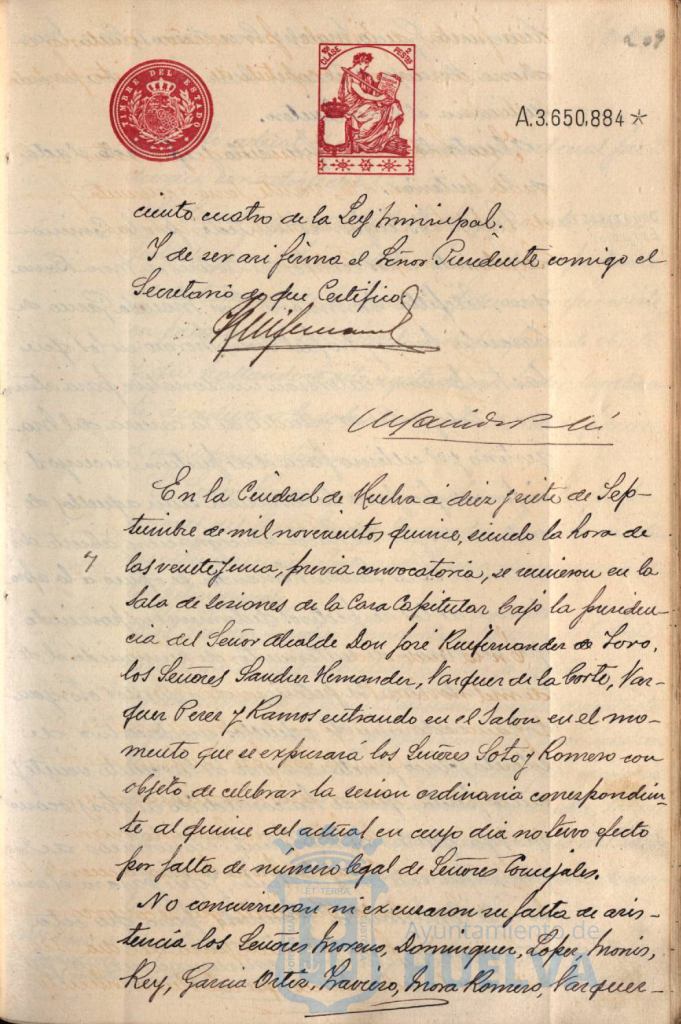 209
TIMBRE DEL ESTADO
9ª CLASE 2 PESETAS
A.3.650,884*
ciento cuatro de la Ley Municipal.
Y de ser asi firma el Señor Presidente comigo el
Secretario de que Certifico.
En la Ciudad de Huelva á diez y siete de Sep-
tiembre de mil novecientos quince, siendo la hora de
las veinte y una, previa convocatoria, se reunieron en la
Sala de Sesiones de la Casa Capitular bajo la presiden-
cia del Señor Alcalde Don José Ruifernandez de Toro,
los Señores Sanchez Hernandez, Vazquez de la Corte, Vaz-
quez Perez y Ramos entrando en el Salon en el mo-
mento que se expresará los Señores Soto y Romero con
objeto de celebrar la sesion ordinaria correspondien-
te al quince del actual en cuyo dia no tuvo efecto
por falta de número legal de Señores Concejales.
No concurrieron ni excusaron su falta de asis-
tencia los Señores Moreno, Dominguez, Lopez, Monis,
Rey, Garcia Ortiz, Traviero, Mora Romero, Vazquez-
Ayuntamiento de
HUELVA